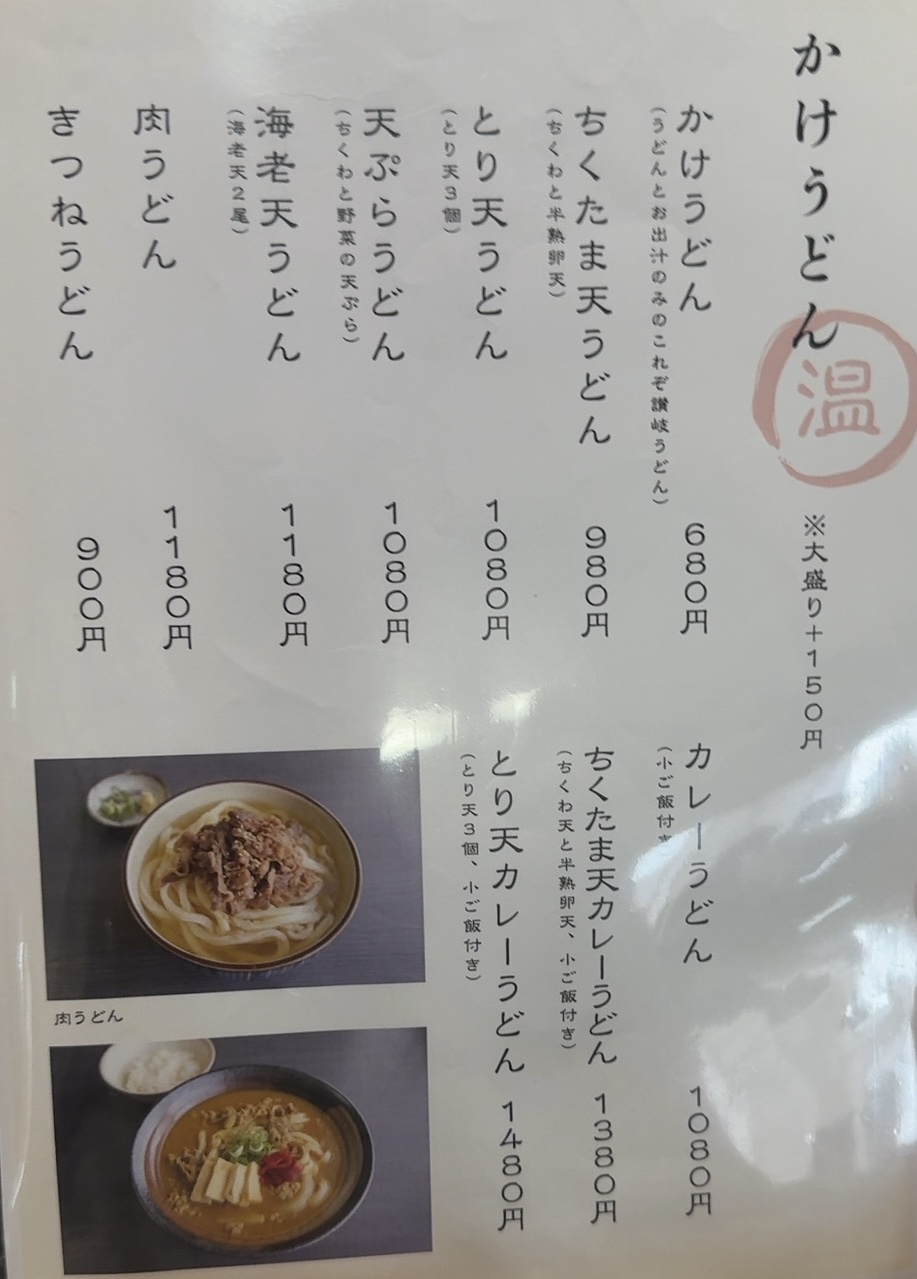 かけうどん
温
※大盛り+150円
かけうどん 680円
(うどんとお出汁のみのこれぞ讃岐うどん)
ちくたま天うどん 980円
(ちくわと半熟卵天)
とり天うどん 1080円
(とり天3個)
天ぷらうどん 1080円
(ちくわと野菜の天ぷら)
海老天うどん 1180円
(海老天2尾)
肉うどん 1180円
きつねうどん 900円
カレーうどん 1080円
(小ご飯付き
ちくたま天カレーうどん 1380円
(ちくわ天と半熟卵天、小ご飯付き)
とり天カレーうどん 1480円
(とり天3個、小ご飯付き)
肉うどん